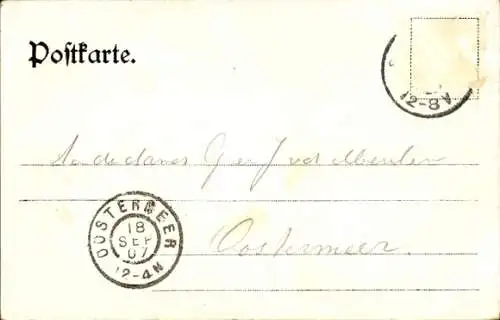 Postkarte.
12-8V
de dames G en J vd Meulen
OOSTERMEER
18
SEP
07
12-4N
Oostermeer